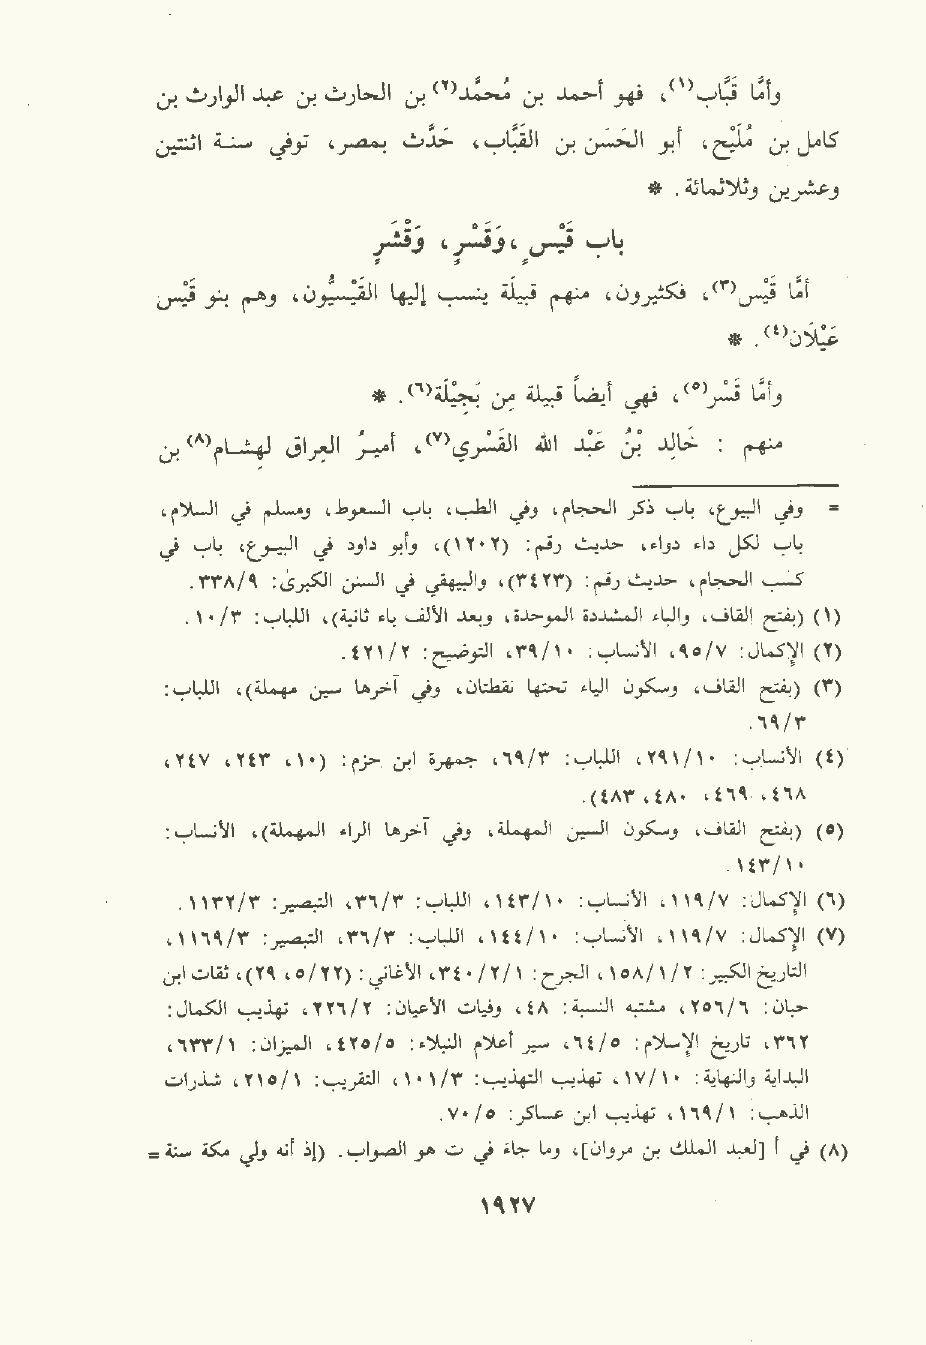 وأمَّا قَبَّاب(١)، فهو أحمد بن مُحمَّد(٢) بن الحارث بن عبد الوارث بن
كامل بن مُلَيْح، أبو الحَسَن بن القَبَّاب، حَدَّث بمصر، توفي سنة اثنتين
وعشرين وثلاثمائة. *
باب قَيْسٍ، وَقَسْرٍ، وَقْشَرٍ
أمَّا قَيْس(٣)، فكثيرون، منهم قبيلة ينسب إليها القَيْسيُّون، وهم بنو قَيْس
عَيْلَان(٤). *
وأمَّا قَسْر(٥)، فهي أيضاً قبيلة مِن بَجِيْلَة(٦). *
منهم : خَالِد بْنُ عَبْد الله القَسْري(٧)، أميرُ العِراق لهِشام(٨) بن
= وفي البيوع، باب ذكر الحجام، وفي الطب، باب السعوط، ومسلم في السلام،
باب لكل داء دواء، حديث رقم: (١٢٠٢)، وأبو داود في البيوع، باب في
كسب الحجام، حديث رقم: (٣٤٢٣)، والبيهقي في السنن الكبرى: ٣٣٨/٩.
(١) (بفتح القاف، والباء المشددة الموحدة، وبعد الألف باء ثانية)، اللباب: ١٠/٣.
(٢) الإكمال: ٩٥/٧، الأنساب: ٣٩/١٠، التوضيح: ٤٢١/٢.
(٣) (بفتح القاف، وسكون الياء تحتها نقطتان، وفي آخرها سين مهملة)، اللباب:
٦٩/٣.
(٤) الأنساب: ٢٩١/١٠، اللباب: ٦٩/٣، جمهرة ابن حزم: (١٠، ٢٤٣، ٢٤٧،
٤٦٨، ٤٦٩، ٤٨٠، ٤٨٣).
(٥) (بفتح القاف، وسكون السين المهملة، وفي آخرها الراء المهملة)، الأنساب:
١٤٣/١٠.
(٦) الإكمال: ١١٩/٧، الأنساب: ١٤٣/١٠، اللباب: ٣٦/٣، التبصير: ١١٣٢/٣.
(٧) الإكمال: ١١٩/٧، الأنساب: ١٤٤/١٠، اللباب: ٣٦/٣، التبصير: ١١٦٩/٣،
التاريخ الكبير: ١٥٨/١/٢، الجرح: ٣٤٠/٢/١، الأغاني: (٥/٢٢، ٢٩)، ثقات ابن
حبان: ٢٥٦/٦، مشتبه النسبة: ٤٨، وفيات الأعيان: ٢٢٦/٢، تهذيب الكمال:
٣٦٢، تاريخ الإسلام: ٦٤/٥، سير أعلام النبلاء: ٤٢٥/٥، الميزان: ٦٣٣/١،
البداية والنهاية: ١٧/١٠، تهذيب التهذيب: ١٠١/٣، التقريب: ٢١٥/١، شذرات
الذهب: ١٦٩/١، تهذيب ابن عساكر: ٧٠/٥.
(٨) في أ [لعبد الملك بن مروان]، وما جاء في ت هو الصواب. (إذ أنه ولي مكة سنة =
١٩٢٧